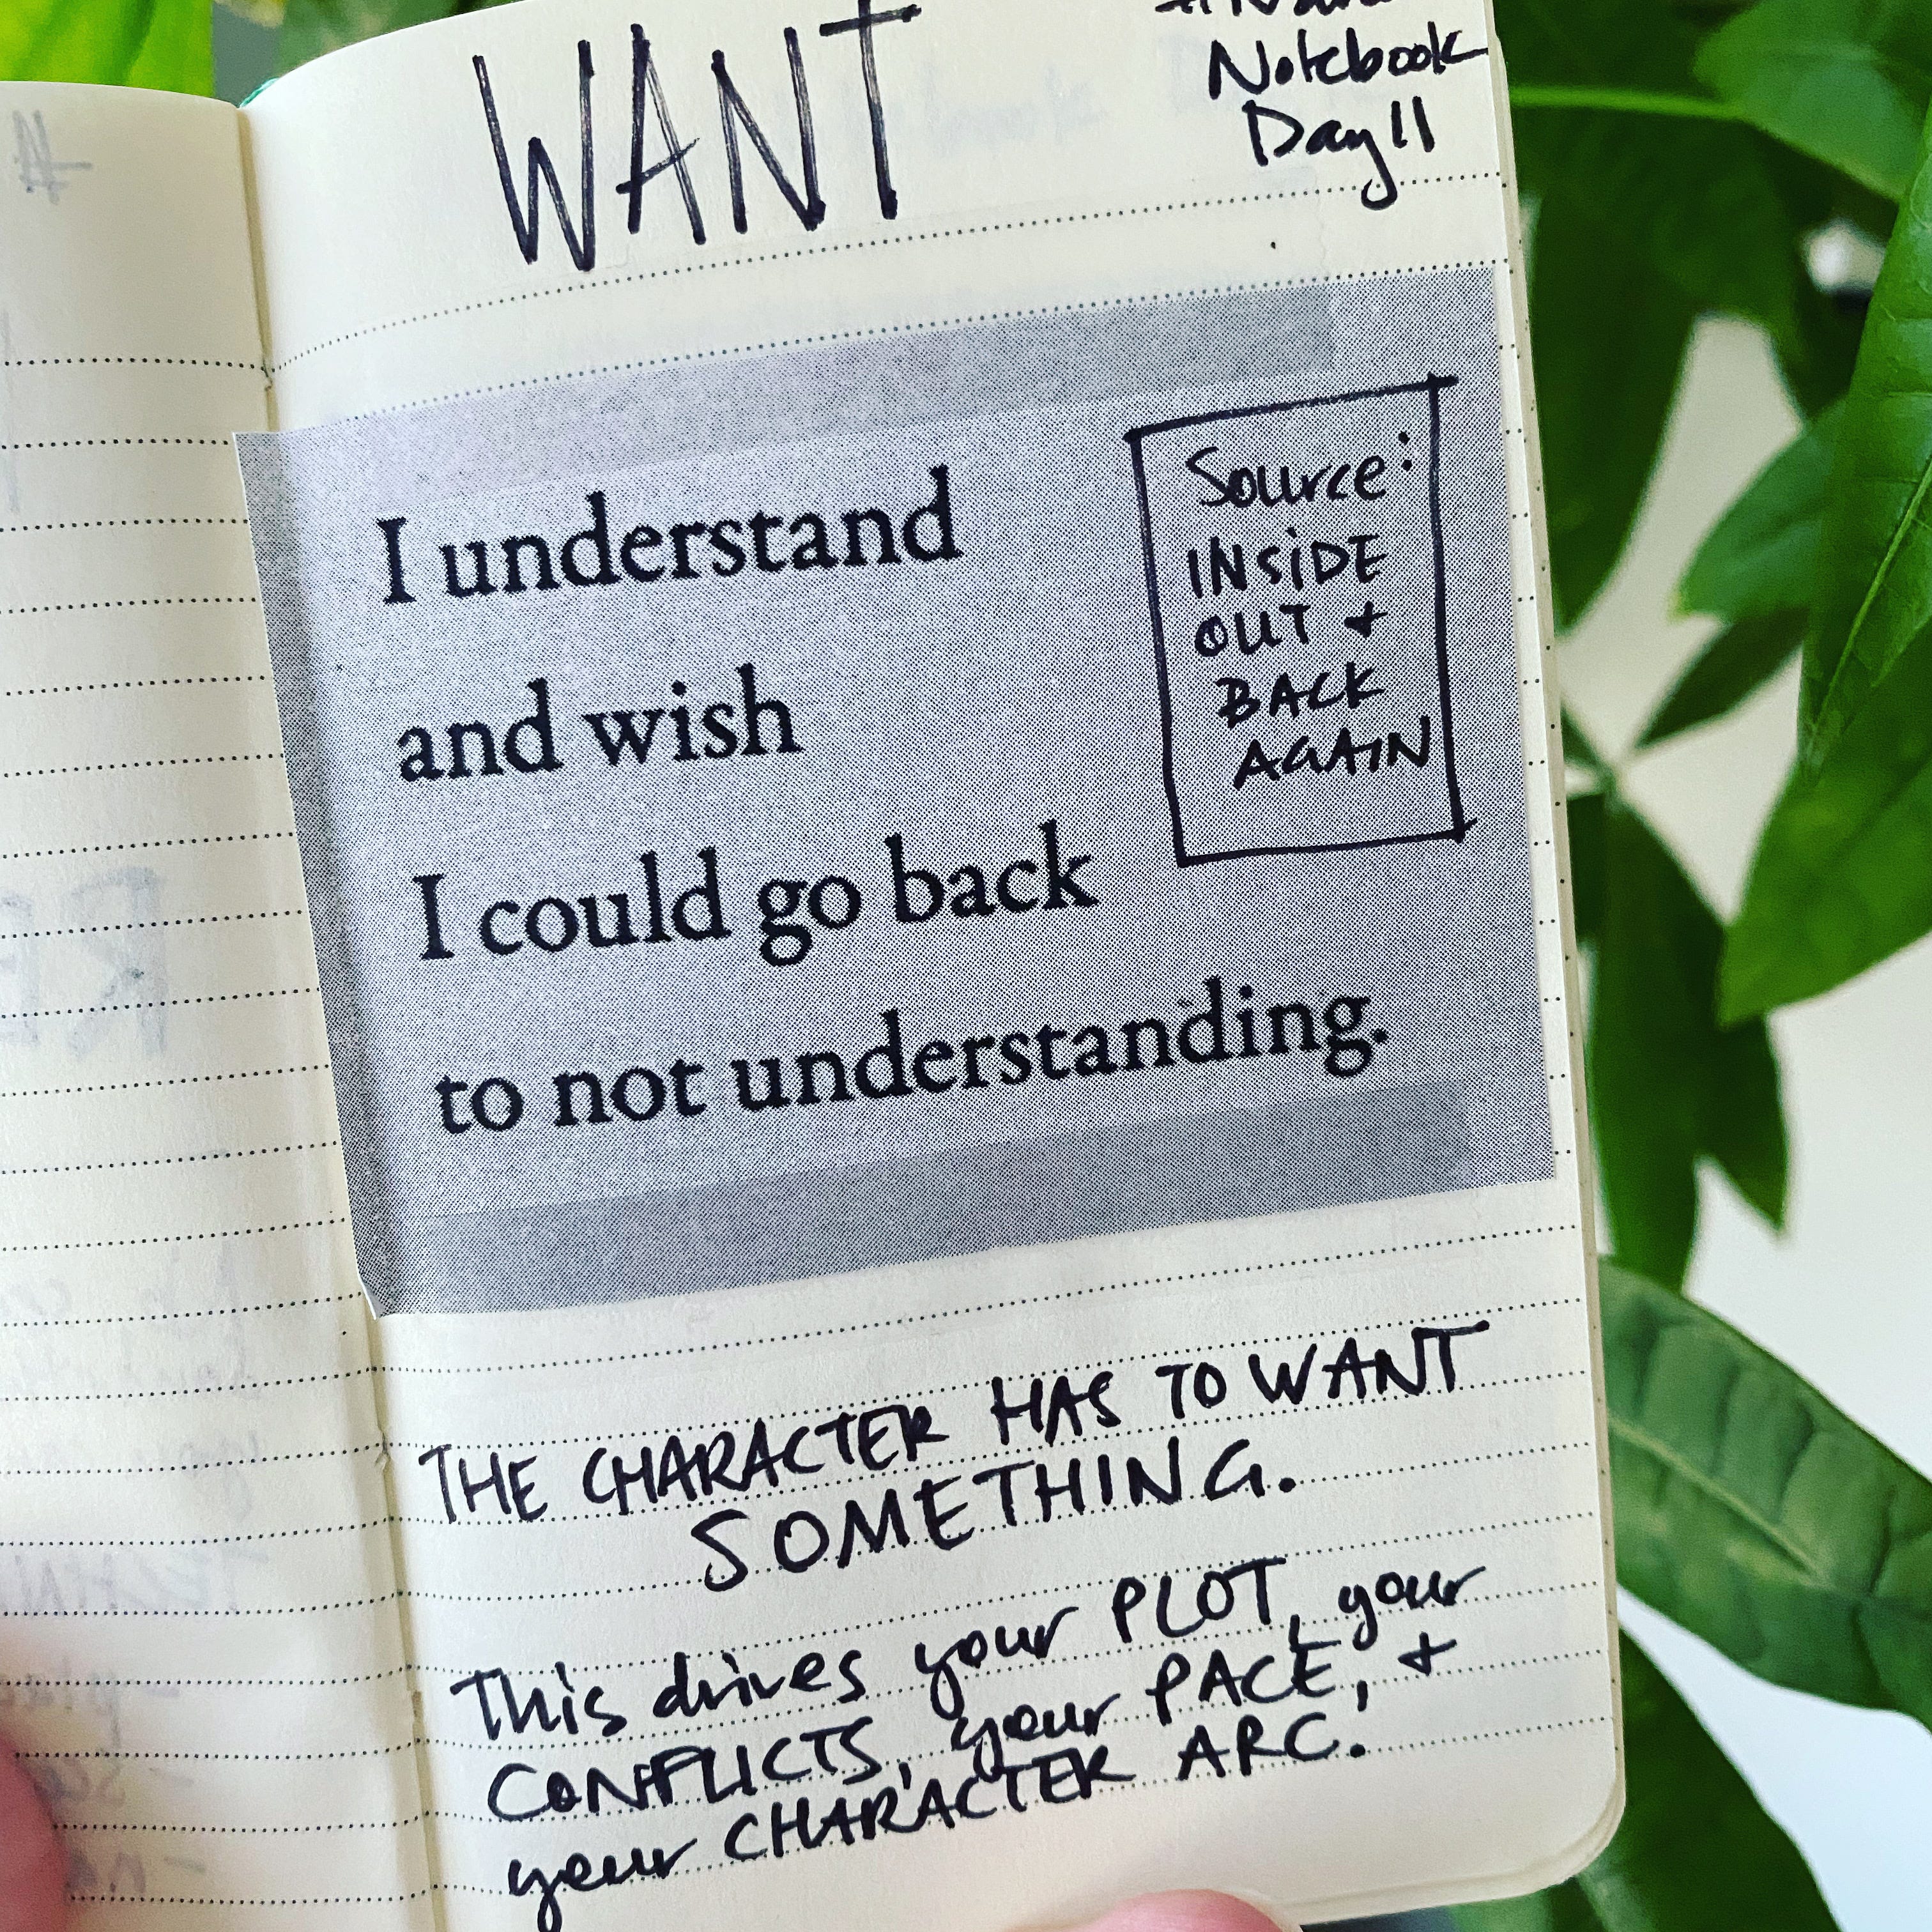 WANT
Notebook
Day 11
I understand
and wish
I could go back
to not understanding.
Source:
INSIDE
OUT +
BACK
AGAIN
THE CHARACTER HAS TO WANT
SOMETHING.
This drives your PLOT, your
CONFLICTS, your PACE, +
your CHARACTER ARC.